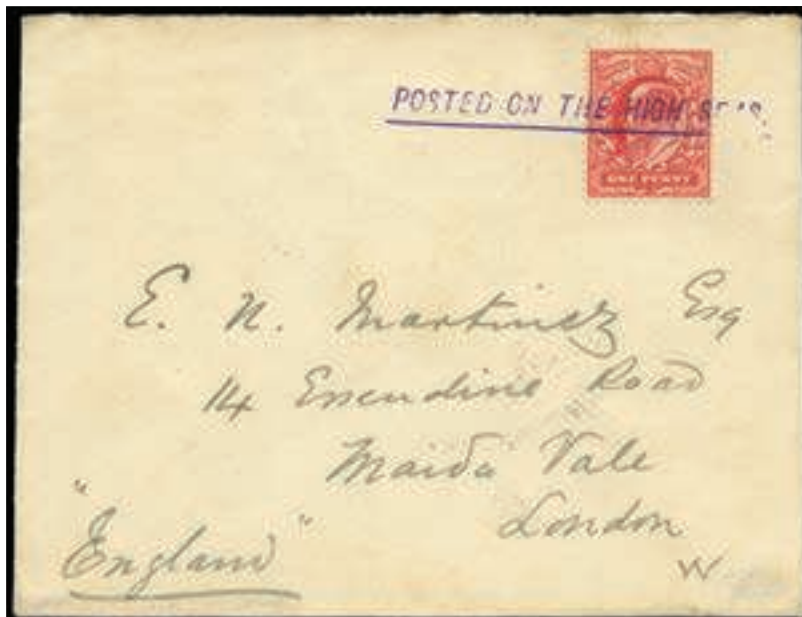 POSTED ON THE HIGH SEAS.
ONE PENNY
E. N. Martinez Esq
14 Essendine Road
Maida Vale
London
W
"England"